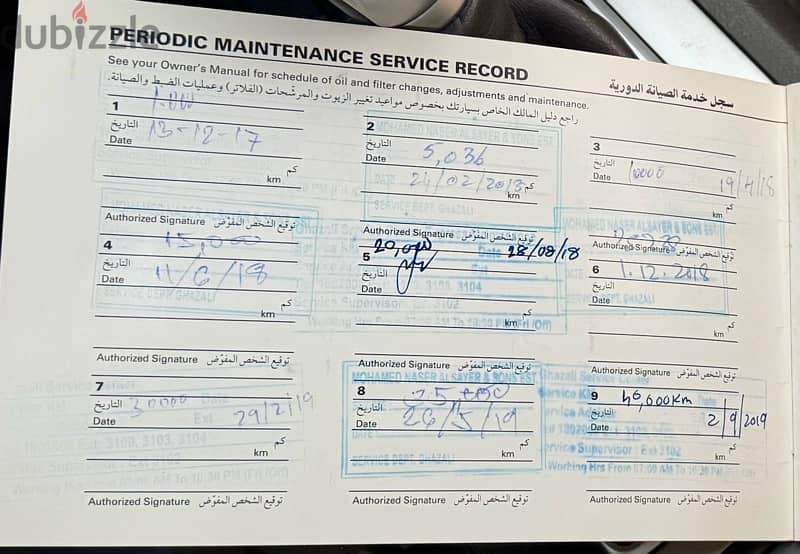 dubizzle
PERIODIC MAINTENANCE SERVICE RECORD
سجل خدمة الصيانة الدورية
See your Owner's Manual for schedule of oil and filter changes, adjustments and maintenance.
راجع دليل المالك الخاص بسيارتك بخصوص مواعيد تغيير الزيوت والمرشّحات (الفلاتر) وعمليات الضبط والصيانة.
1
1.000
التاريخ
Date
13-12-17
كم
km
Authorized Signature توقيع الشخص المفوّض
2
MOHAMED NASER ALSAYER & SONS EST
التاريخ
Date
5,036
DATE 24/02/2018
كم
km
SERVICE DEPT. GHAZALI
Authorized Signature توقيع الشخص المفوّض
3
التاريخ
Date
10000
19/4/18
كم
km
Authorized Signature توقيع الشخص المفوّض
4
15,000
التاريخ
Date
11/6/18
SERVICE DEPT. GHAZALI
كم
km
Authorized Signature توقيع الشخص المفوّض
5
20,000
Date 28/08/18
التاريخ
Date
3103, 3104
Service Supervisor : Ext. 3102
كم
km
Authorized Signature توقيع الشخص المفوّض
MOHAMED NASER ALSAYER & SONS EST
6
التاريخ
Date
1.12.2018
SERVICE DEPT. GHAZALI
كم
km
Authorized Signature توقيع الشخص المفوّض
7
التاريخ
Date
30000
29/2/19
Ext: 3109, 3103, 3104
كم
km
Authorized Signature توقيع الشخص المفوّض
MOHAMED NASER ALSAYER & SONS EST
8
التاريخ
Date
26/5/19
SERVICE DEPT. GHAZALI
كم
km
Authorized Signature توقيع الشخص المفوّض
Ghazali Service Center
9
40,000km
التاريخ
Date
2/9/2019
Service Supervisor : Ext 3102
كم
km
Working Hrs From 07:00 AM To 10:30 PM
Authorized Signature توقيع الشخص المفوّض